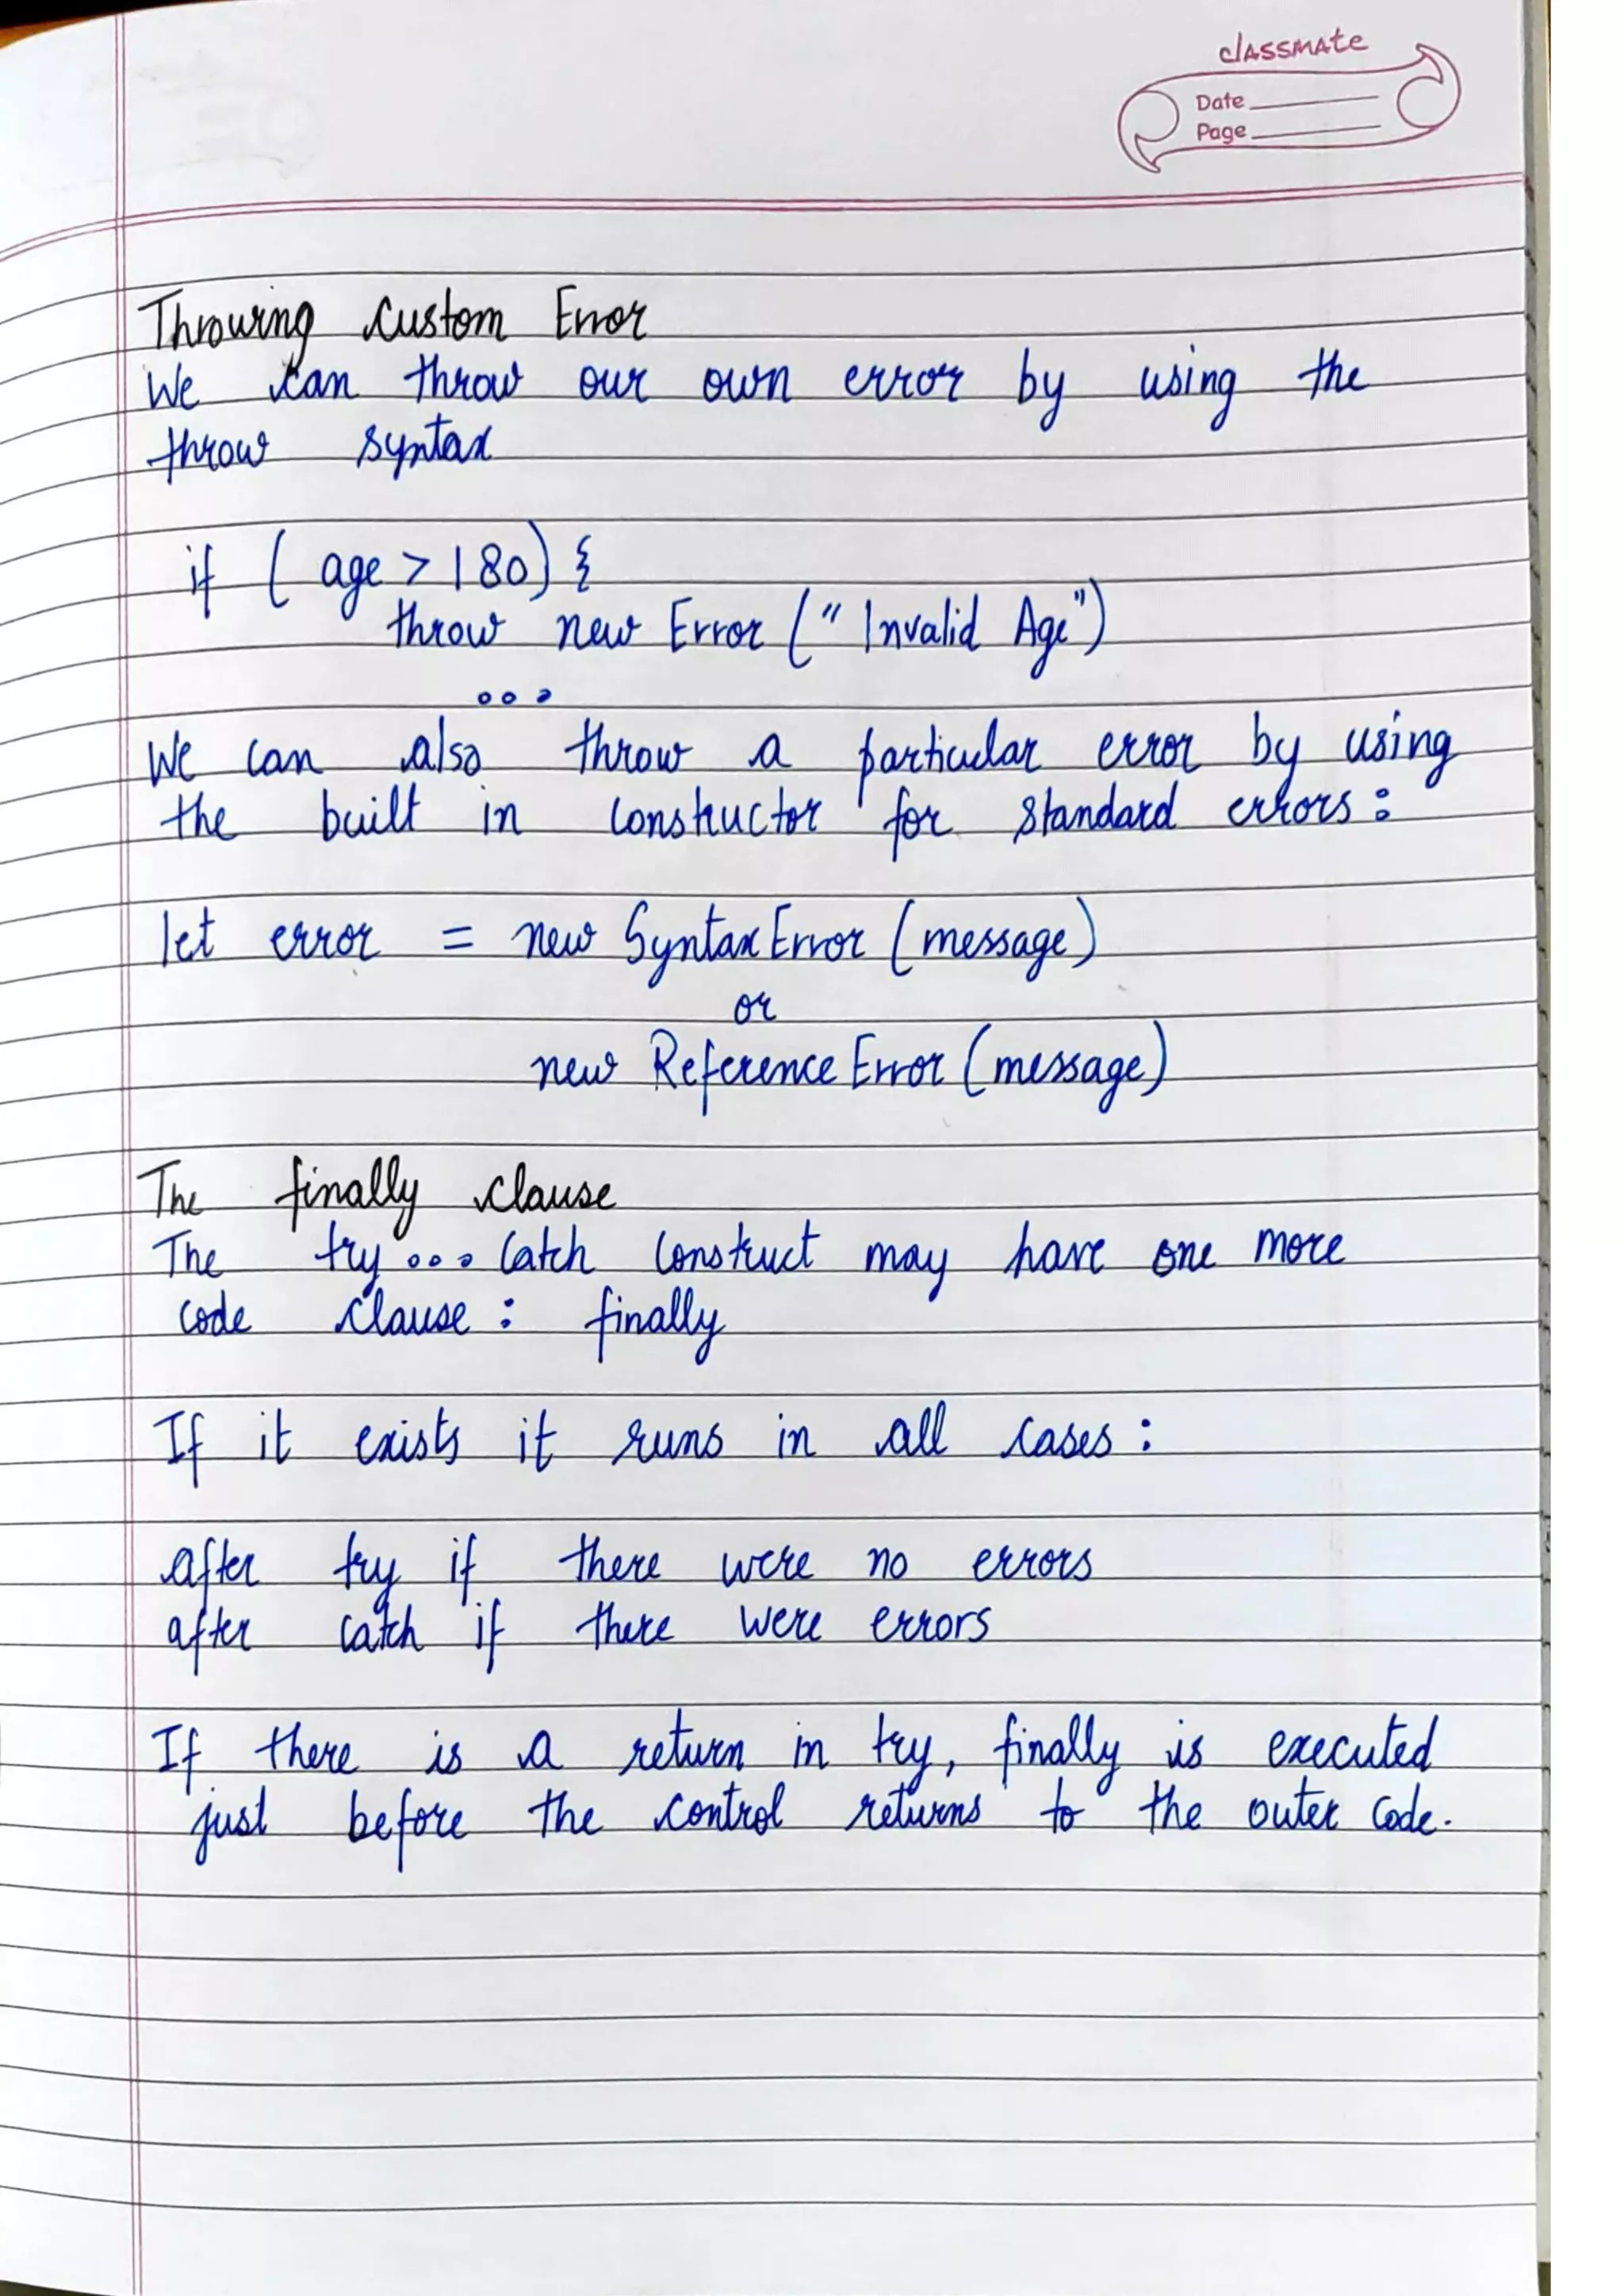 classmate
Date
Page
Throwing Custom Error
We can throw our own error by using the
throw syntax
if ( age > 180) {
throw new Error (" Invalid Age")
...
We can also throw a particular error by using
the built in constructor for standard errors :
let error = new SyntaxError (message)
or
new ReferenceError (message)
The finally clause
The try... catch construct may have one more
code clause : finally
If it exists it runs in all cases :
after try if there were no errors
after catch if there were errors
If there is a return in try, finally is executed
just before the control returns to the outer code.